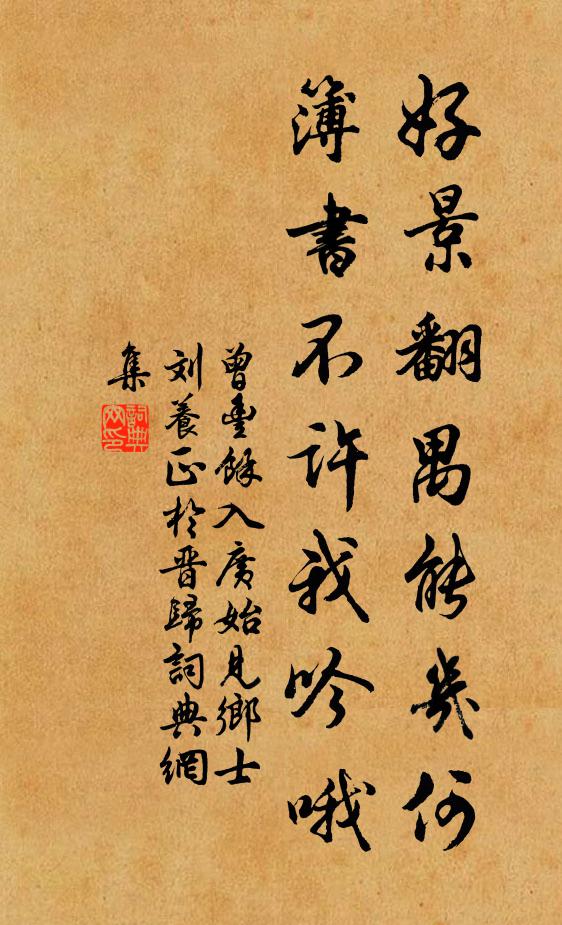 好景翻禺能幾何
簿書不許我吟哦
曾豐餘入廣始見鄉士
刘養正於晋歸詞典網
集
詞典網印